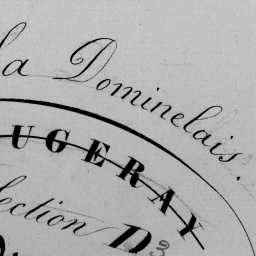 la Dominelais.
UGERAY
lection D